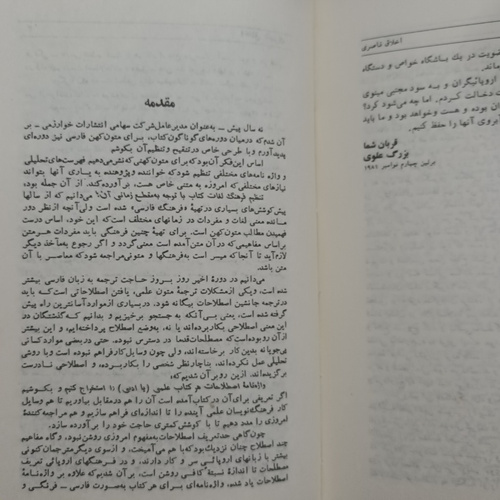 اخلاق ناصری
ضویت در یك باشگاه خواص و دستگاه
ماند.
اروپائیگران و به سود مجتبی مینوی
دخالت کردم. اما چه می‌شود کرد؟
بوده و هست و خواهد بود و ما باید
آبروی آنها را حفظ کنیم.
قربان شما
بزرگ علوی
برلین چهارم نوامبر ۱۹۸۱
مقدمه
نه سال پیش ــ به‌عنوان مدیرعامل شرکت سهامی انتشارات خوارزمی ــ بر
آن شدم که درمیان دوره‌های گوناگون کتاب، برای متون کهن فارسی نیز دوره‌ای
پدید آورم و با طرحی خاص در تنقیح و تنظیم آن بکوشم
اساس این فکر آن بود که برای متون کهنی که نشر می‌دهیم فهرست‌های تحلیلی
و واژه نامه‌های مختلفی تنظیم شود که خواننده و پژوهنده به یاری آنها بتواند
نیازهای مختلفی که امروزه به متنی خاص هست، بر آورده کند. از آن جمله بود،
تنظیم فرهنگ لغات کتاب با توجه به مقطع زمانی آن. می‌دانیم که از سالها
پیش کوشش‌های بسیاری در تهیهٔ «فرهنگ فارسی» شده است ولی آنچه از نظر دور
مانده معنی لغات و مفردات در زمانهای مختلف است که این خود، اساس درست
فهمیدن مطالب متون کهن است. برای تهیهٔ چنین فرهنگی باید مفردات هر متن
براساس مفاهیمی که در آن متن آمده معنی گردد و اگر رجوع به مآخذ دیگر
لازم آید تا آنجا که میسر است به فرهنگها و متونی مراجعه شود که معاصر با آن
متن باشد.
می‌دانیم در دورهٔ اخیر روز بروز حاجت ترجمه به زبان فارسی بیشتر
شده است، و یکی از مشکلات ترجمهٔ متون علمی، یافتن اصطلاحاتی است که باید
در ترجمه جانشین اصطلاحات بیگانه شود. در بسیاری از موارد آسانترین راه پیش
گرفته شده است، یعنی بی‌آنکه به جستجو برخیزیم و بدانیم که گذشتگان در
این معنی اصطلاحی بکار برده‌اند یا نه، به‌وضع اصطلاح پرداخته‌ایم، و این بیشتر
از آن رو بوده است که مصطلحات قدما در دسترس نبوده. حتی در بعضی موارد کسانی
پی‌جویانه بدین کار برخاسته‌اند، ولی چون وسایل کار فراهم نبوده است و با روشی
تحلیلی عمل نکرده‌اند، بناچار نظر شخصی را بکار برده، و اصطلاحی نارسا
برگزیده‌اند. ازین رو بر آن شدیم که،
واژه‌نامهٔ اصطلاحات هر کتاب علمی (یا ادبی) را استخراج کنیم و بکوشیم
اگر تعریفی برای آن در کتاب آمده است آن را هم در مقابل بیاوریم تا هم وسایل
کار فرهنگ‌نویسان علمی آینده را تا اندازه‌ای فراهم سازیم و هم مراجعه‌کنندهٔ
امروزی را مدد دهیم تا با کوشش کمتری حاجت خود را برآورده سازد.
چون گاهی حد تعریف اصطلاحات به‌مفهوم امروزی روشن نبود، و گاه مفاهیم
چند اصطلاح چنان نزدیک بود که با هم می‌آمیخت، و ازسوی دیگر مترجمان کنونی
بیشتر با زبانهای اروپائی سر و کار دارند، و در فرهنگهای اروپائی تعریف
مصطلحات تا اندازهٔ نسبتهٔ کافی روشن است، بر آن شدیم که علاوه بر واژه‌نامهٔ
اصطلاحات یاد شده، واژه‌نامه‌ای برای هر کتاب به‌صورت فارسی ــ فرنگی و